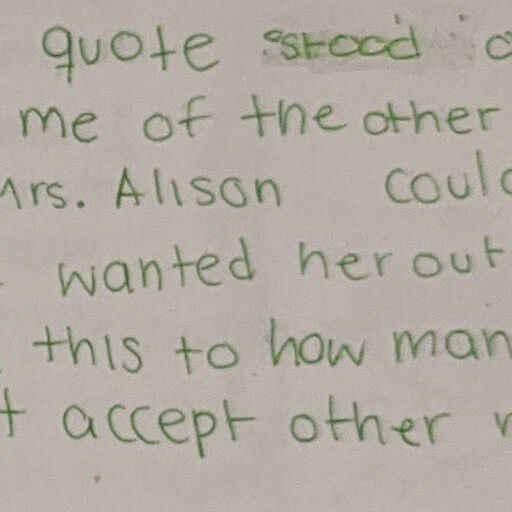 quote stood o
me of the other
Mrs. Alison could
wanted her out
this to how man
t accept other